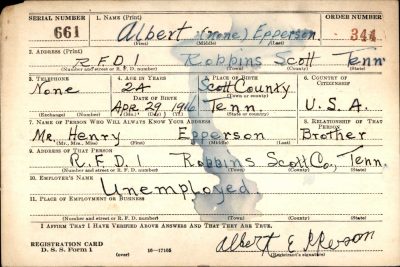 SERIAL NUMBER 1. NAME (Print) ORDER NUMBER
661 Albert (none) Epperson 344
(First) (Middle) (Last)
2. ADDRESS (Print)
R.F.D.1 Robbins Scott Tenn
(Number and street or R. F. D. number) (Town) (County) (State)
3. TELEPHONE 4. AGE IN YEARS 5. PLACE OF BIRTH 6. COUNTRY OF CITIZENSHIP
None 24 Scott County
DATE OF BIRTH (Town or county)
Apr 29 1916 Tenn U.S.A.
(Exchange) (Number) (Mo.) (Day) (Yr.) (State or country)
7. NAME OF PERSON WHO WILL ALWAYS KNOW YOUR ADDRESS 8. RELATIONSHIP OF THAT PERSON
Mr. Henry Epperson Brother
(Mr., Mrs., Miss) (First) (Middle) (Last)
9. ADDRESS OF THAT PERSON
R.F.D.1 Robbins Scott Co., Tenn.
(Number and street or R. F. D. number) (Town) (County) (State)
10. EMPLOYER'S NAME
Unemployed
11. PLACE OF EMPLOYMENT OR BUSINESS
(Number and street or R. F. D. number) (Town) (County) (State)
I AFFIRM THAT I HAVE VERIFIED ABOVE ANSWERS AND THAT THEY ARE TRUE.
REGISTRATION CARD
D. S. S. Form 1 (over) 16—17105 Albert Epperson
(Registrant's signature)